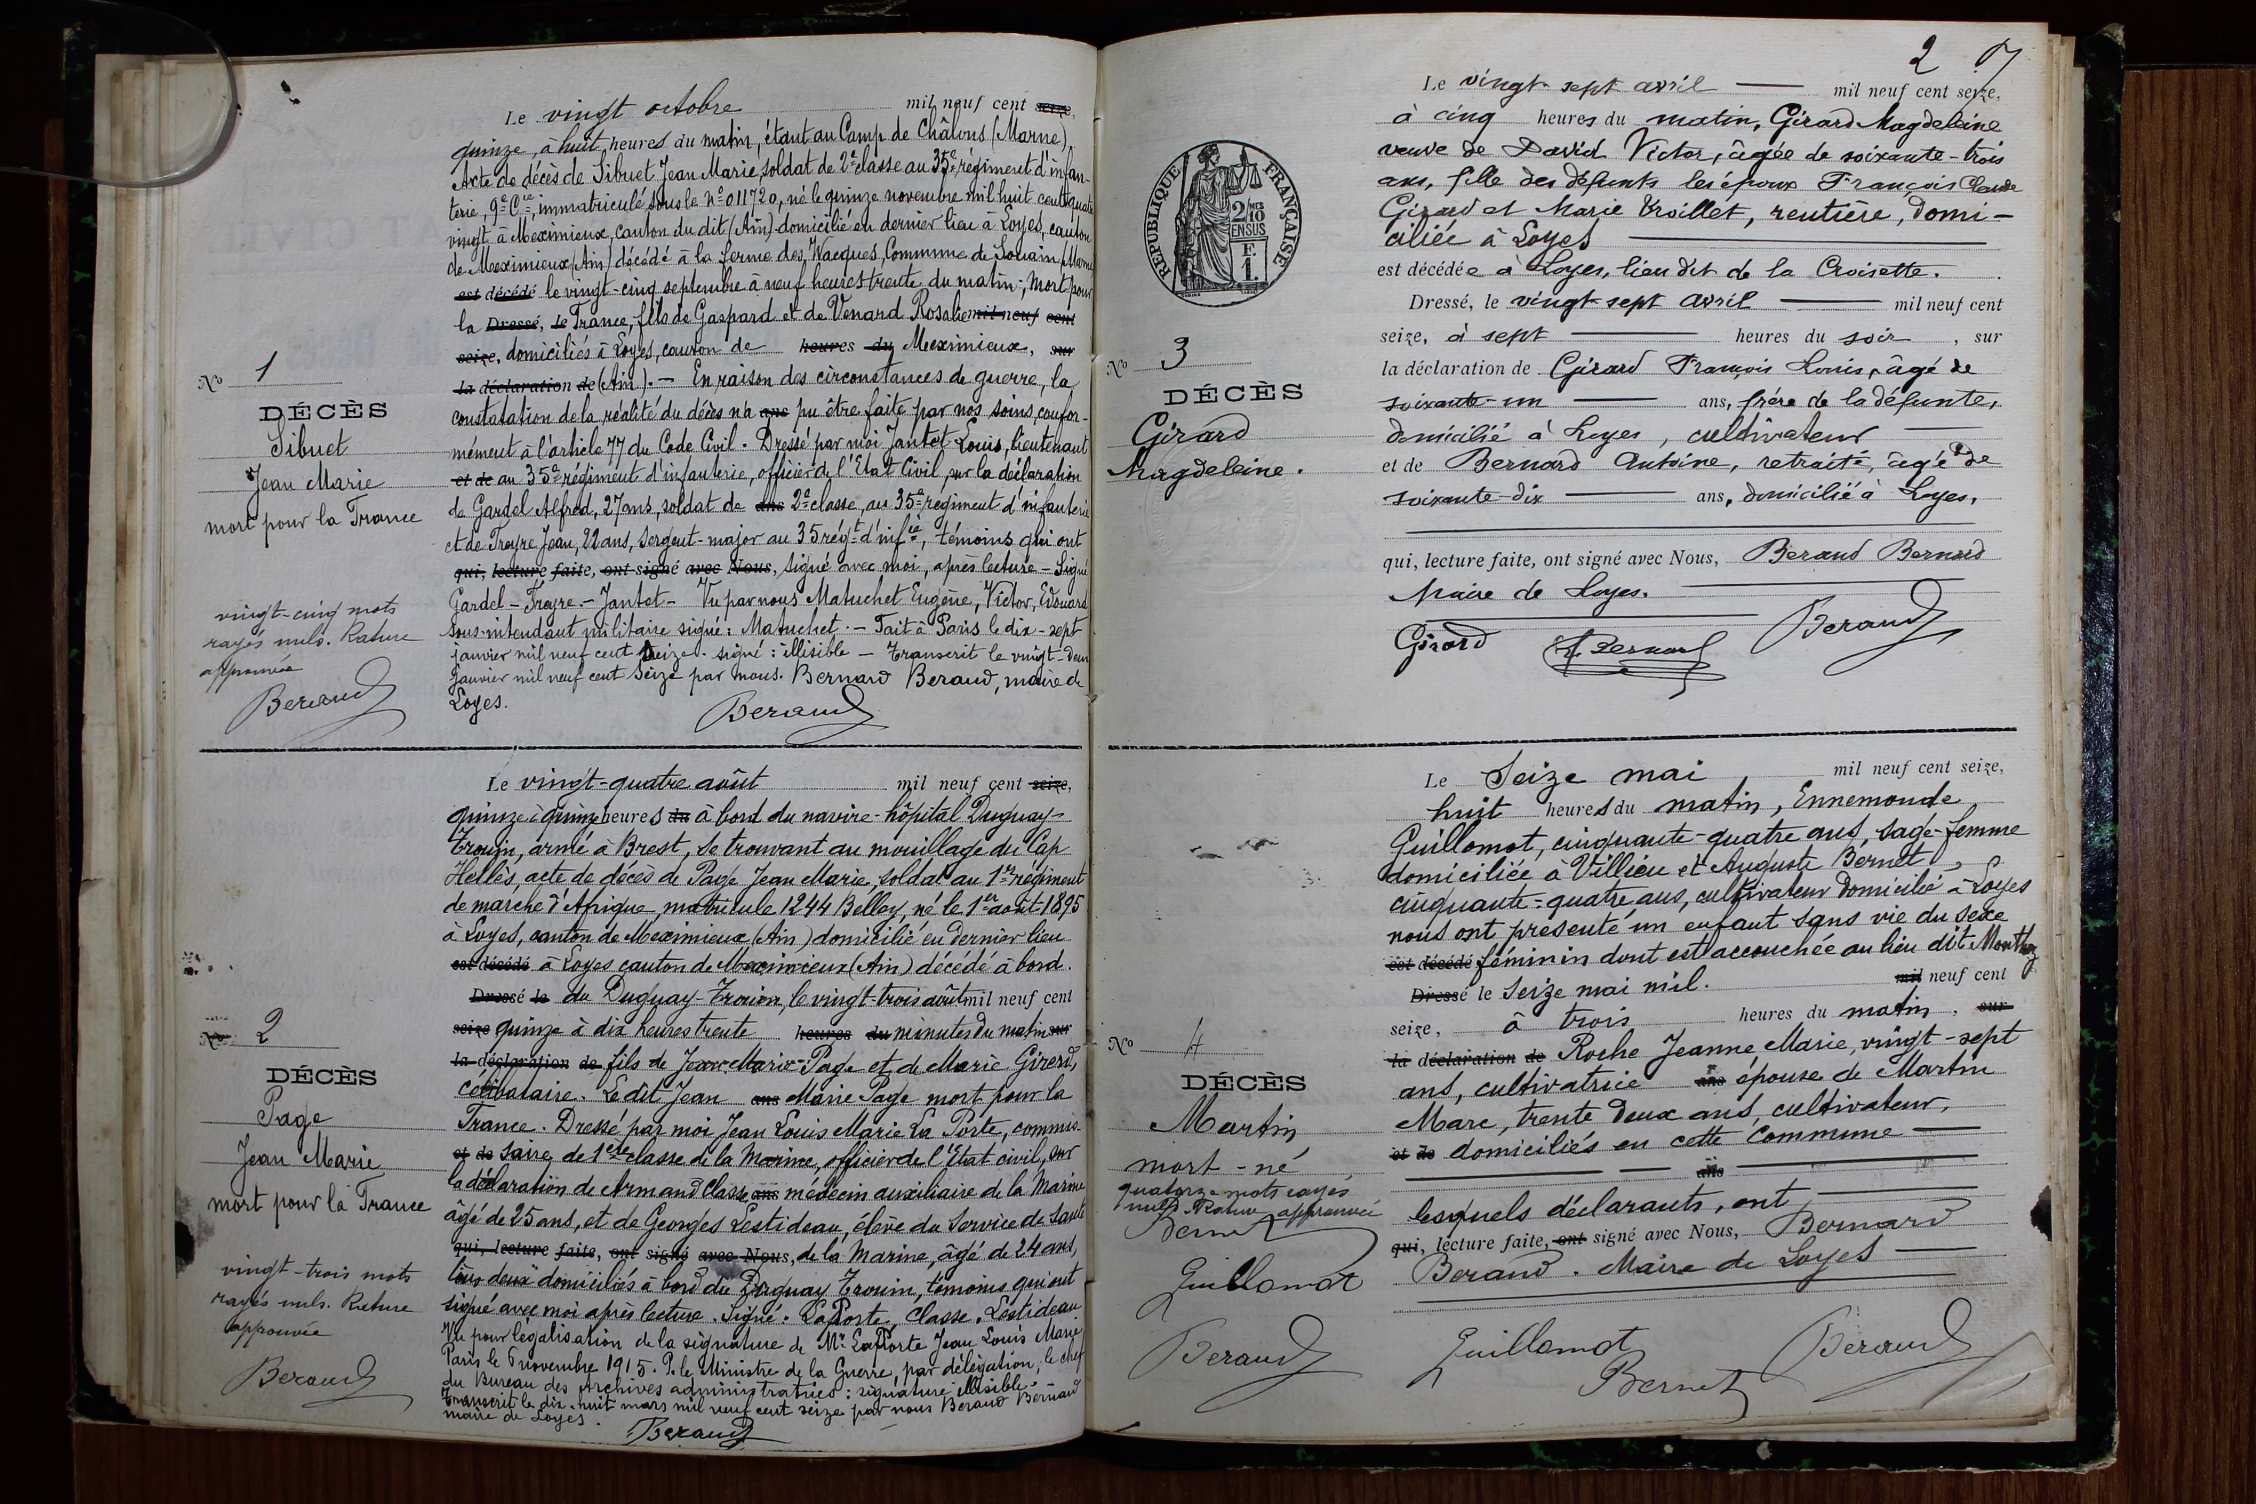 Le vingt octobre mil neuf cent seize,
quinze, à huit heures du matin, étant au Camp de Châlons (Marne),
Acte de décès de Sibuet Jean Marie, soldat de 2e classe au 35e régiment d'infan-
terie, 9e Cie, immatriculé sous le No 011720, né le quinze novembre mil huit cent quatre
vingt à Meximieux, canton du dit (Ain) domicilié en dernier lieu à Loyes, canton
de Meximieux (Ain) décédé à la ferme des Wacques, Commune de Souain (Marne
est décédé le vingt-cinq septembre à neuf heures trente du matin; Mort pour
la Dressé, le France, fils de Gaspard et de Venard Rosalie mil neuf cent
seize, domiciliés à Loyes, canton de heures du Meximieux, sur
la déclaration de (Ain). — En raison des circonstances de guerre, la
constatation de la réalité du décès n'a ans pu être faite par nos soins, confor-
mément à l'article 77 du Code Civil. Dressé par moi Jantet Louis, lieutenant
et de au 35e régiment d'infanterie, officier de l'Etat Civil, sur la déclaration
de Gardel Alfred, 27 ans, soldat de ans 2e classe, au 35e régiment d'infanterie
et de Freyre Jean, 22 ans, Sergent-major au 35 régt d'infie, témoins qui ont
qui, lecture faite, ont signé avec Nous, signé avec moi, après lecture - Signé
Gardel - Freyre - Jantet - Vu par nous Matuchet Eugène, Victor, Edouard
sous-intendant militaire signé: Matuchet. - Fait à Paris le dix-sept
janvier mil neuf cent seize. signé: illisible - Transcrit le vingt-deux
Janvier mil neuf cent seize par nous. Bernard Beraud, maire de
Loyes.
Beraud
No 1
DÉCÈS
Sibuet
Jean Marie
mort pour la France
vingt-cinq mots
rayés nuls. Rature
approuvée
Beraud
Le vingt-quatre août mil neuf cent seize,
quinze à quinze heures du à bord du navire-hôpital Duguay-
Trouin, armé à Brest, se trouvant au mouillage du Cap
Hellès, acte de décès de Page Jean Marie, soldat au 1er régiment
de marche d'Afrique, matricule 1244 Belley, né le 1er août 1895
à Loyes, canton de Meximieux (Ain) domicilié en dernier lieu
est décédé à Loyes canton de Meximieux (Ain) décédé à bord.
Dressé le du Duguay-Trouin, le vingt-trois août mil neuf cent
seize quinze à dix heures trente heures du minutes du matin sur
la déclaration de fils de Jean Marie Page et de Marie Girerd,
célibataire. Le dit Jean ans Marie Page mort pour la
France. Dressé par moi Jean Louis Marie La Porte, commis-
et de saire de 1ere classe de la Marine, officier de l'Etat civil, sur
la déclaration de Armand Classe ans médecin auxiliaire de la Marine
agé de 25 ans, et de Georges Lestideau, élève du Service de santé
qui, lecture faite, ont signé avec Nous, de la Marine, âgé de 24 ans,
tous deux domiciliés à bord du Duguay Trouin, témoins qui ont
signé avec moi après lecture. Signé: LaPorte, Classe, Lestideau
Vu pour légalisation de la signature de Mr LaPorte Jean Louis Marie
Paris le 6 novembre 1915. P. le Ministre de la Guerre, par délégation, le chef
du Bureau des Archives administratives: signature illisible.
Transcrit le dix-huit mars mil neuf cent seize par nous Beraud Bernard
maire de Loyes.
Beraud
No 2
DÉCÈS
Page
Jean Marie
mort pour la France
vingt-trois mots
rayés nuls. Rature
approuvée
Beraud
2
RÉPUBLIQUE FRANÇAISE
2 MES
10
EN SUS
F.
1.
Le vingt-sept avril mil neuf cent seize,
à cinq heures du matin, Girard Magdeleine
veuve de David Victor, âgée de soixante-trois
ans, fille des défunts les époux François Claude
Girard et Marie Troillet, rentière, domi-
ciliée à Loyes
est décédée à Loyes, lieu dit de la Croisette.
Dressé, le vingt-sept avril mil neuf cent
seize, à sept heures du soir, sur
la déclaration de Girard François Louis, âgé de
soixante-un ans, frère de la défunte,
domicilié à Loyes, cultivateur
et de Bernard Antoine, retraité, âgé de
soixante-dix ans, domicilié à Loyes,
qui, lecture faite, ont signé avec Nous, Beraud Bernard
Maire de Loyes.
Girard A. Bernard Beraud
No 3
DÉCÈS
Girard
Magdeleine.
Le Seize mai mil neuf cent seize,
huit heures du matin, Ennemonde
Guillomot, cinquante-quatre ans, sage-femme
domiciliée à Villieu et Auguste Bernet,
cinquante-quatre ans, cultivateur domicilié à Loyes
nous ont présenté un enfant sans vie du sexe
est décédé féminin dont est accouchée au lieu dit Monthoz
Dressé le seize mai mil. mil neuf cent
seize, à trois heures du matin, sur
la déclaration de Roche Jeanne Marie, vingt-sept
ans, cultivatrice ans épouse de Martin
Marc, trente deux ans, cultivateur,
et de domiciliés en cette Commune
ans
lesquels déclarants, ont
qui, lecture faite, ont signé avec Nous, Bernard
Beraud. Maire de Loyes
Guillomot Bernet Beraud
No 4
DÉCÈS
Martin
mort-né
quatorze mots rayés
nuls. Rature approuvée
Bernet
Guillomot
Beraud